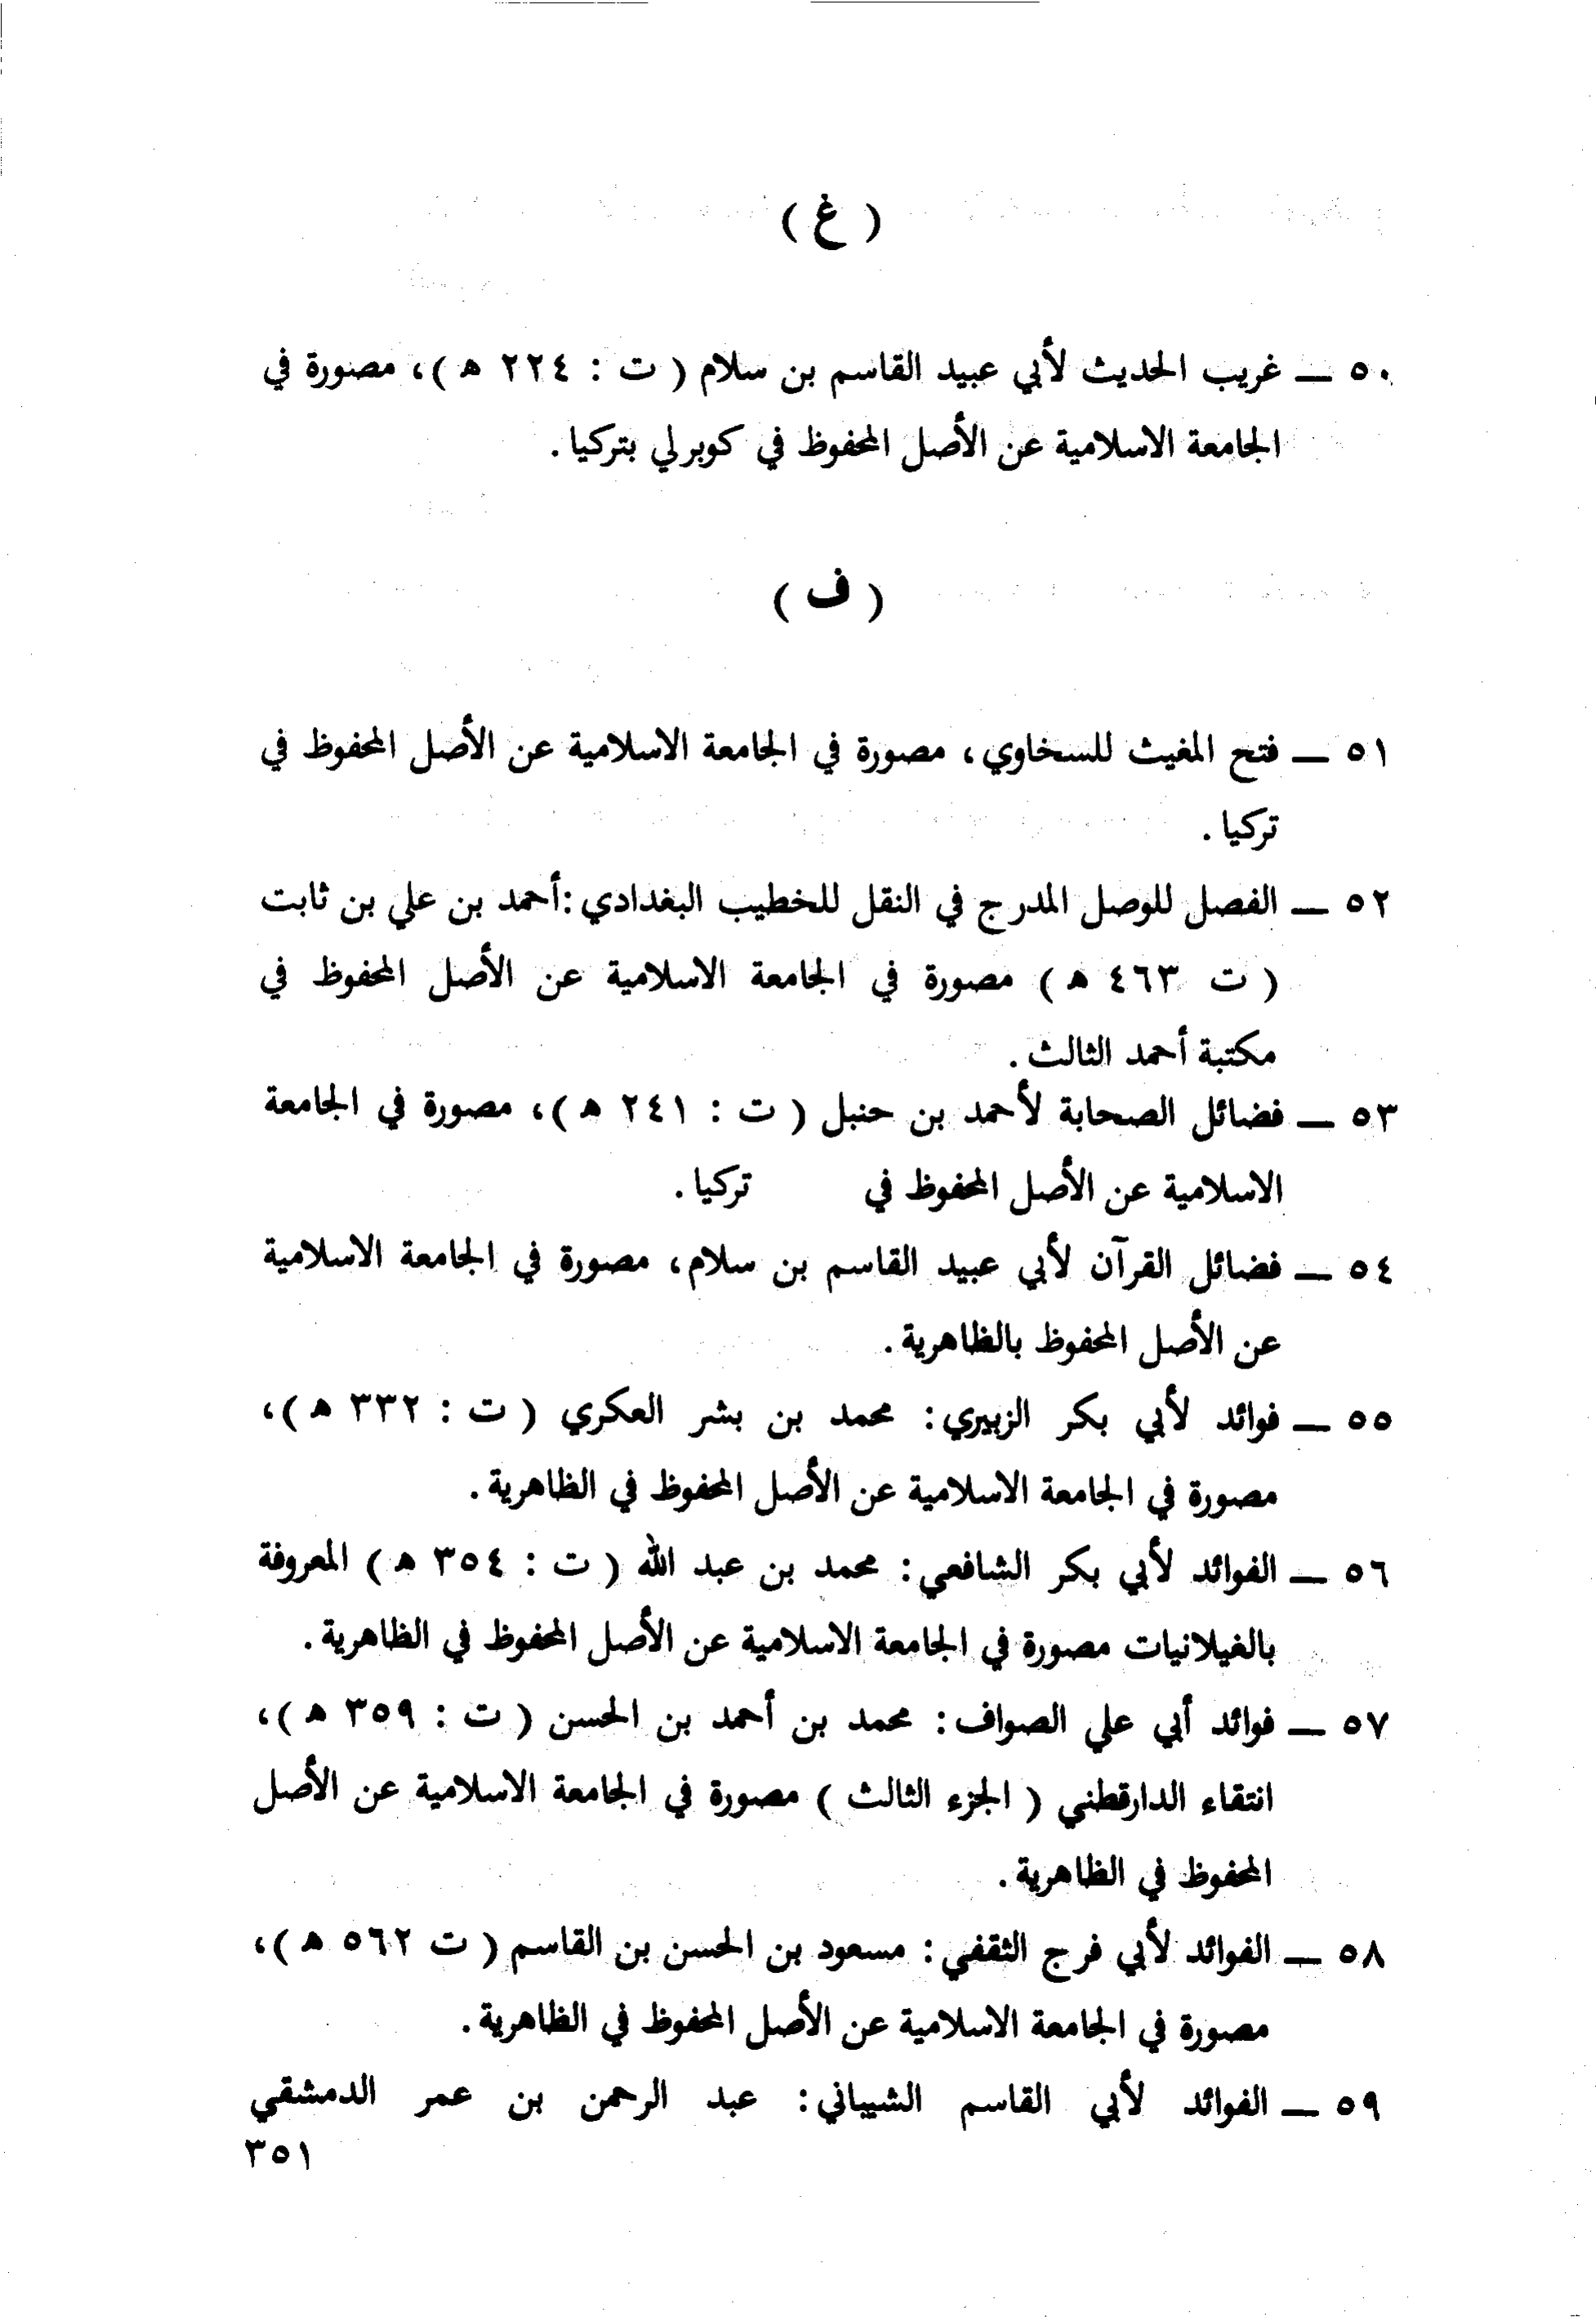 ( غ )
٥٠ ــ غريب الحديث لأبي عبيد القاسم بن سلام ( ت : ٢٢٤ هـ )، مصورة في
الجامعة الاسلامية عن الأصل المحفوظ في كوبرلي بتركيا .
( ف )
٥١ ــ فتح المغيث للسخاوي، مصورة في الجامعة الاسلامية عن الأصل المحفوظ في
تركيا .
٥٢ ــ الفصل للوصل المدرج في النقل للخطيب البغدادي :أحمد بن علي بن ثابت
( ت ٤٦٣ هـ ) مصورة في الجامعة الاسلامية عن الأصل المحفوظ في
مكتبة أحمد الثالث .
٥٣ ــ فضائل الصحابة لأحمد بن حنبل ( ت : ٢٤١ هـ )، مصورة في الجامعة
الاسلامية عن الأصل المحفوظ في تركيا .
٥٤ ــ فضائل القرآن لأبي عبيد القاسم بن سلام، مصورة في الجامعة الاسلامية
عن الأصل المحفوظ بالظاهرية .
٥٥ ــ فوائد لأبي بكر الزبيري : محمد بن بشر العكري ( ت : ٣٣٢ هـ )،
مصورة في الجامعة الاسلامية عن الأصل المحفوظ في الظاهرية .
٥٦ ــ الفوائد لأبي بكر الشافعي : محمد بن عبد الله ( ت : ٣٥٤ هـ ) المعروفة
بالغيلانيات مصورة في الجامعة الاسلامية عن الأصل المحفوظ في الظاهرية .
٥٧ ــ فوائد أبي علي الصواف : محمد بن أحمد بن الحسن ( ت : ٣٥٩ هـ )،
انتقاء الدارقطني ( الجزء الثالث ) مصورة في الجامعة الاسلامية عن الأصل
المحفوظ في الظاهرية .
٥٨ ــ الفوائد لأبي فرج الثقفي : مسعود بن الحسن بن القاسم ( ت ٥٦٢ هـ )،
مصورة في الجامعة الاسلامية عن الأصل المحفوظ في الظاهرية .
٥٩ ــ الفوائد لأبي القاسم الشيباني : عبد الرحمن بن عمر الدمشقي
٣٥١